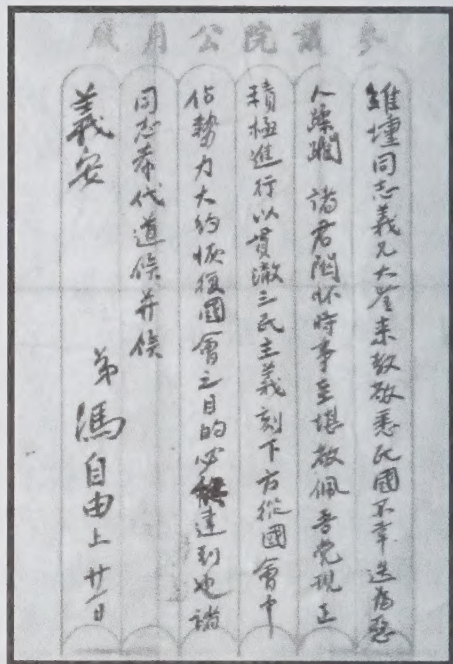 參議院公用牋
維壎同志義兄大鑒來教敬悉民國不幸迭為惡
人蹂躪 諸君關怀時事至堪敬佩吾党現正
積極進行以貫澈三民主義刻下方從國會中
佔勢力大約恢復國會之目的必達到也諸
同志希代道候并候
義安
弟馮自由上 廿一日